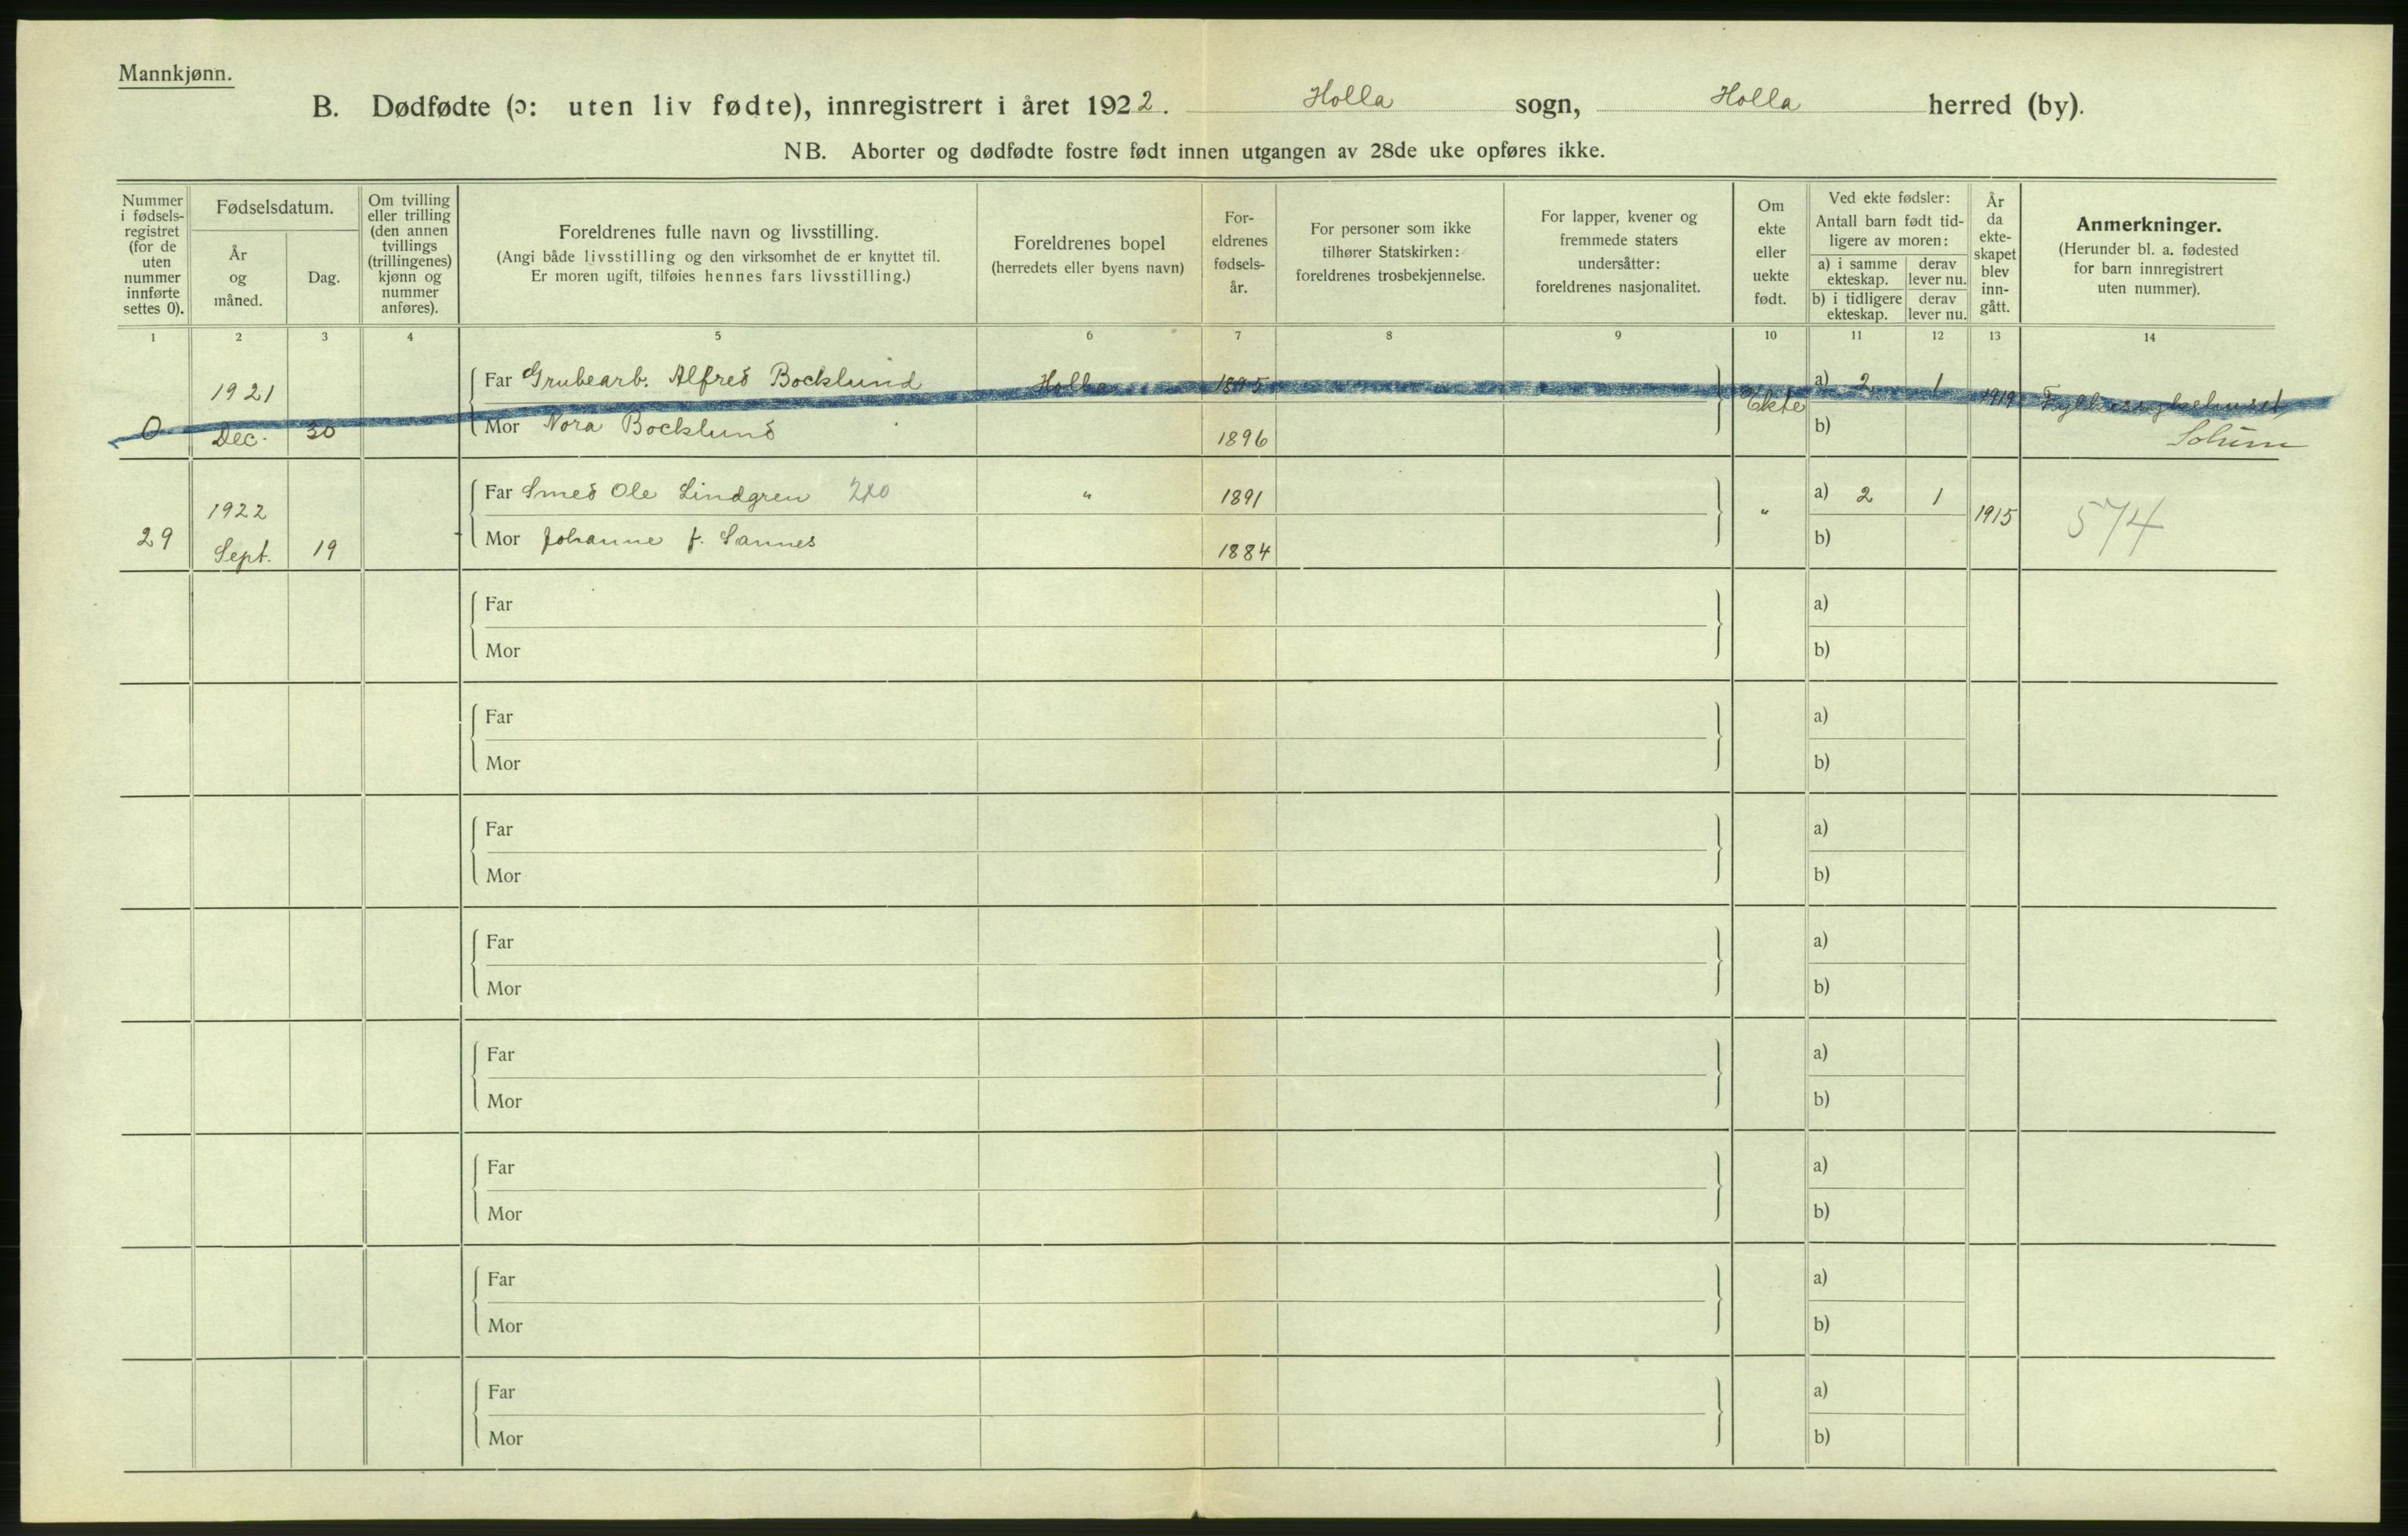 Mannkjønn.
B. Dødfødte (ɔ: uten liv fødte), innregistrert i året 1922. Holla sogn, Holla herred (by).
NB. Aborter og dødfødte fostre født innen utgangen av 28de uke opføres ikke.
Nummer
i fødsels-
registret
(for de
uten
nummer
innførte
settes 0).
Fødselsdatum.
År
og
måned.
Dag.
Om tvilling
eller trilling
(den annen
tvillings
(trillingenes)
kjønn og
nummer
anføres).
Foreldrenes fulle navn og livsstilling.
(Angi både livsstilling og den virksomhet de er knyttet til.
Er moren ugift, tilføies hennes fars livsstilling.)
Foreldrenes bopel
(herredets eller byens navn)
For-
eldrenes
fødsels-
år.
For personer som ikke
tilhører Statskirken:
foreldrenes trosbekjennelse.
For lapper, kvener og
fremmede staters
undersåtter:
foreldrenes nasjonalitet.
Om
ekte
eller
uekte
født.
Ved ekte fødsler:
Antall barn født tid-
ligere av moren:
a) i samme
ekteskap.
derav
lever nu.
b) i tidligere
ekteskap.
derav
lever nu.
År
da
ekte-
skapet
blev
inn-
gått.
Anmerkninger.
(Herunder bl. a. fødested
for barn innregistrert
uten nummer).
1 2 3 4 5 6 7 8 9 10 11 12 13 14
0 1921 Dec. 30
Far Grubearb. Alfred Bocklund Holla 1895 Ekte a) 2 1 1919 Fylkessykehuset,
Mor Nora Bocklund 1896 b) Solum
29 1922 Sept. 19
Far Smed Ole Lindgren 2x0 " 1891 " a) 2 1 1915 574
Mor Johanne f. Sannes 1884 b)
Far a)
Mor b)
Far a)
Mor b)
Far a)
Mor b)
Far a)
Mor b)
Far a)
Mor b)
Far a)
Mor b)
Far a)
Mor b)
Far a)
Mor b)